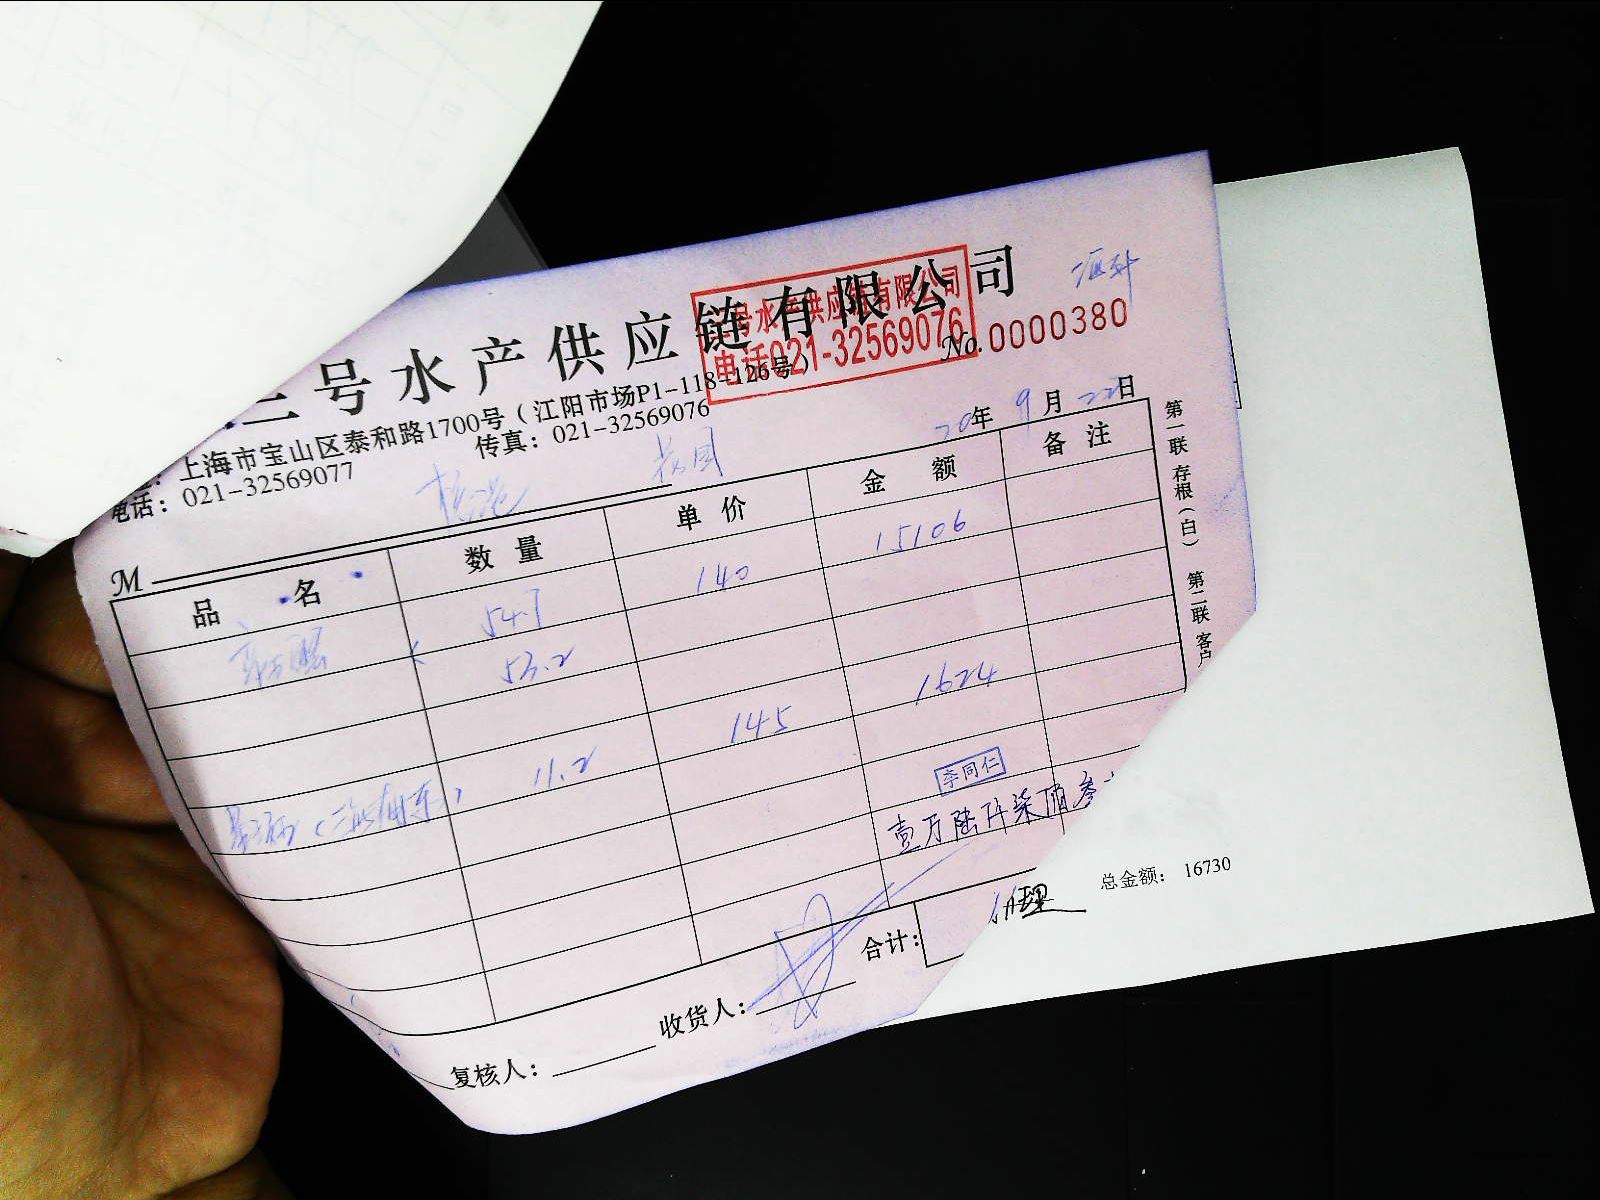 三号水产供应链有限公司
三号水产供应链有限公司
电话021-32569076
No. 0000380
上海市宝山区泰和路1700号（江阳市场P1-118-126号）
电话：021-32569077 传真：021-32569076
20年 9月 22日
M
品 名 数 量 单 价 金 额 备 注
54.7 140 15106
53.2
11.2 145 1624
李同仁
壹万陆仟柒佰叁
合计：
总金额： 16730
收货人：
复核人：
第一联 存根（白） 第二联 客户